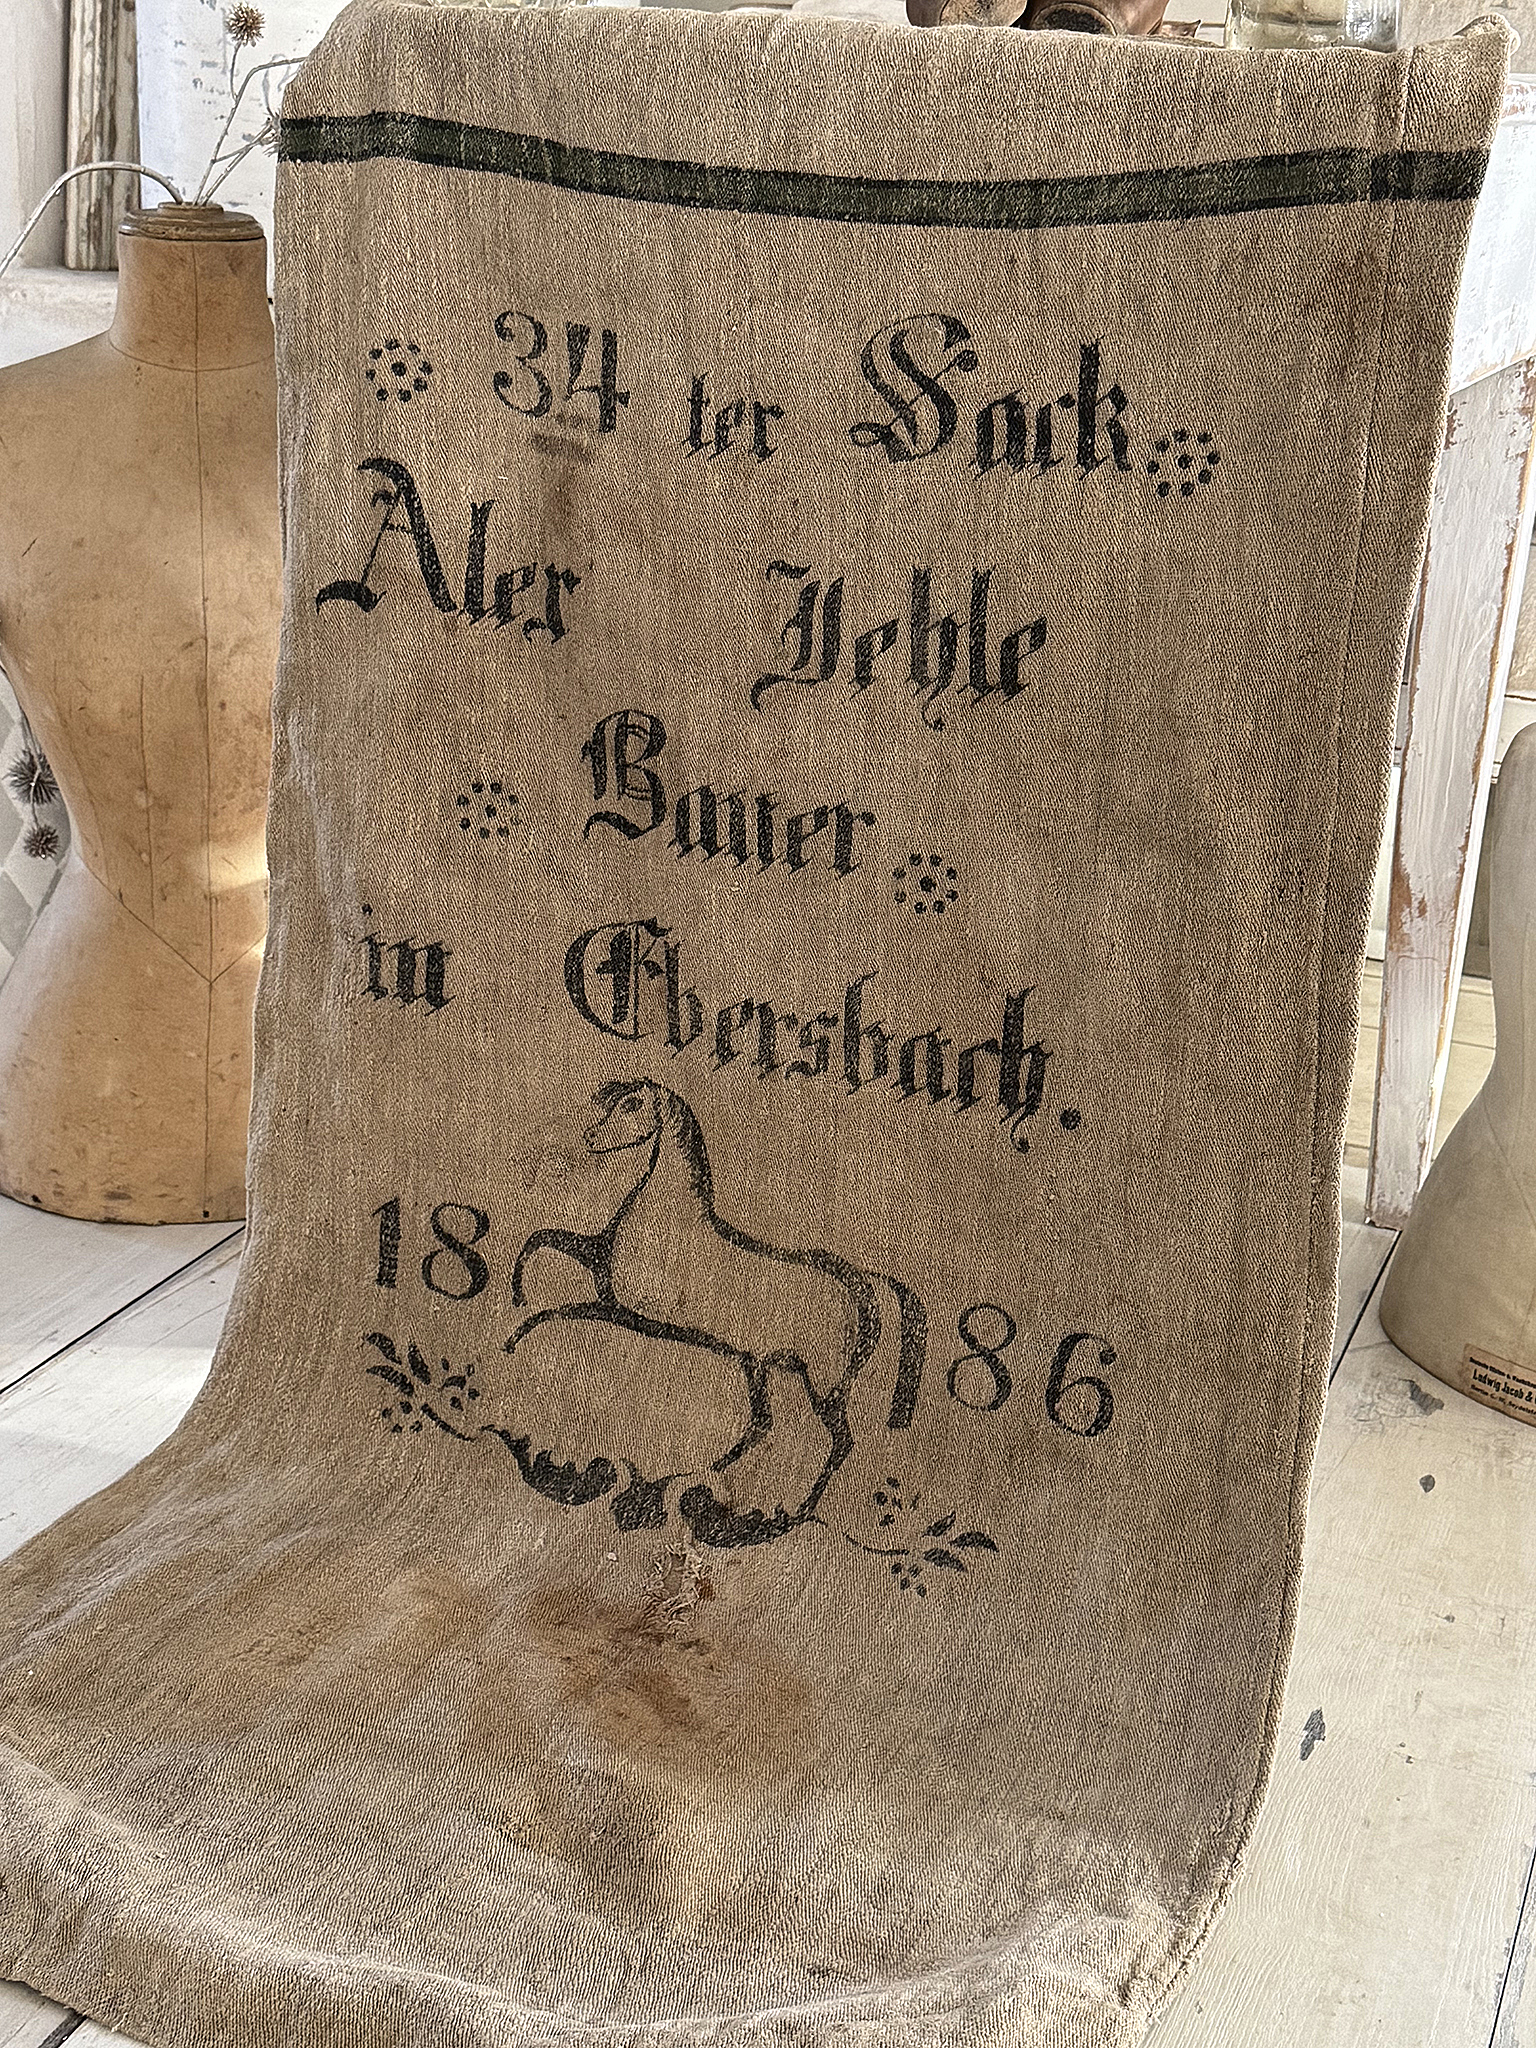 34 ter Sack
Alex Jehle
Bauer
in Ebersbach.
18 86
Ludwig Jacob &